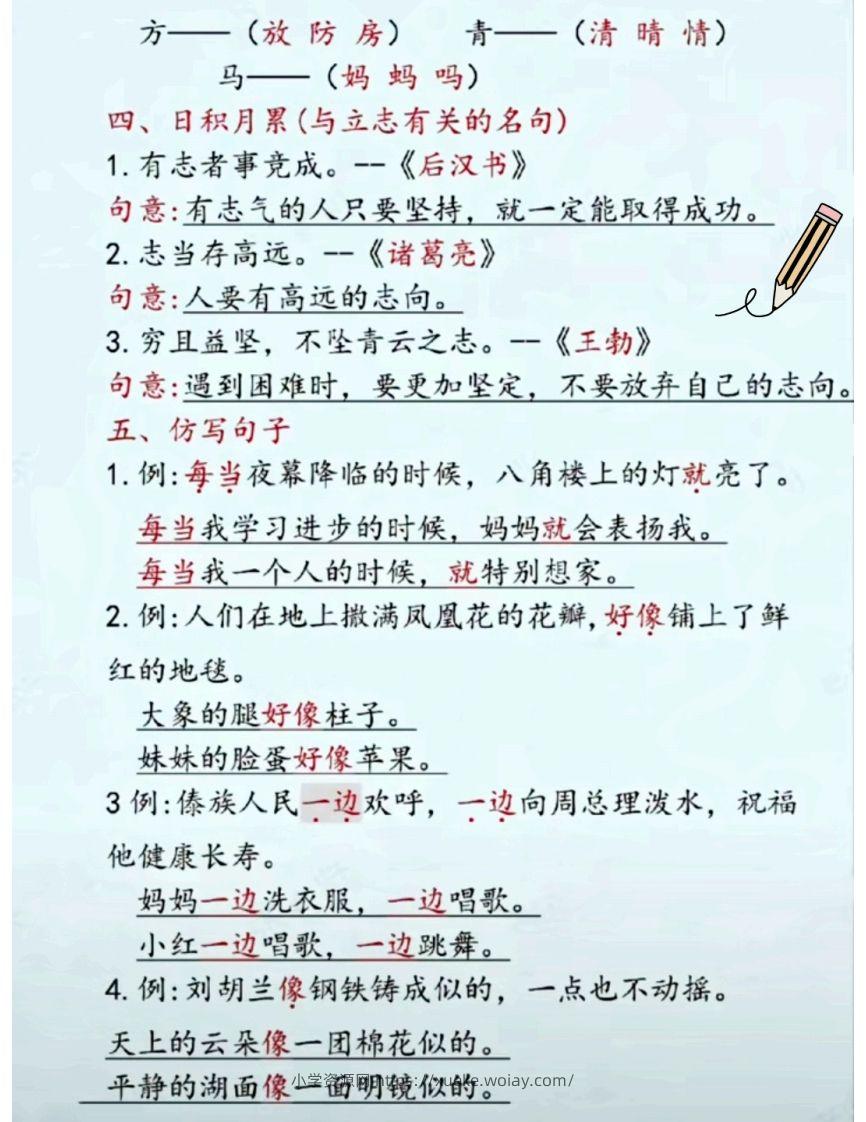 方——（放 防 房） 青——（清 晴 情）
马——（妈 蚂 吗）
四、日积月累(与立志有关的名句)
1.有志者事竞成。--《后汉书》
句意:有志气的人只要坚持，就一定能取得成功。
2.志当存高远。--《诸葛亮》
句意:人要有高远的志向。
3.穷且益坚，不坠青云之志。--《王勃》
句意:遇到困难时，要更加坚定，不要放弃自己的志向。
五、仿写句子
1.例:每当夜幕降临的时候，八角楼上的灯就亮了。
每当我学习进步的时候，妈妈就会表扬我。
每当我一个人的时候，就特别想家。
2.例:人们在地上撒满凤凰花的花瓣,好像铺上了鲜
红的地毯。
大象的腿好像柱子。
妹妹的脸蛋好像苹果。
3例:傣族人民一边欢呼，一边向周总理泼水，祝福
他健康长寿。
妈妈一边洗衣服，一边唱歌。
小红一边唱歌，一边跳舞。
4.例:刘胡兰像钢铁铸成似的，一点也不动摇。
天上的云朵像一团棉花似的。
平静的湖面像一面明镜似的。
小学资源网https://xueke.woiay.com/